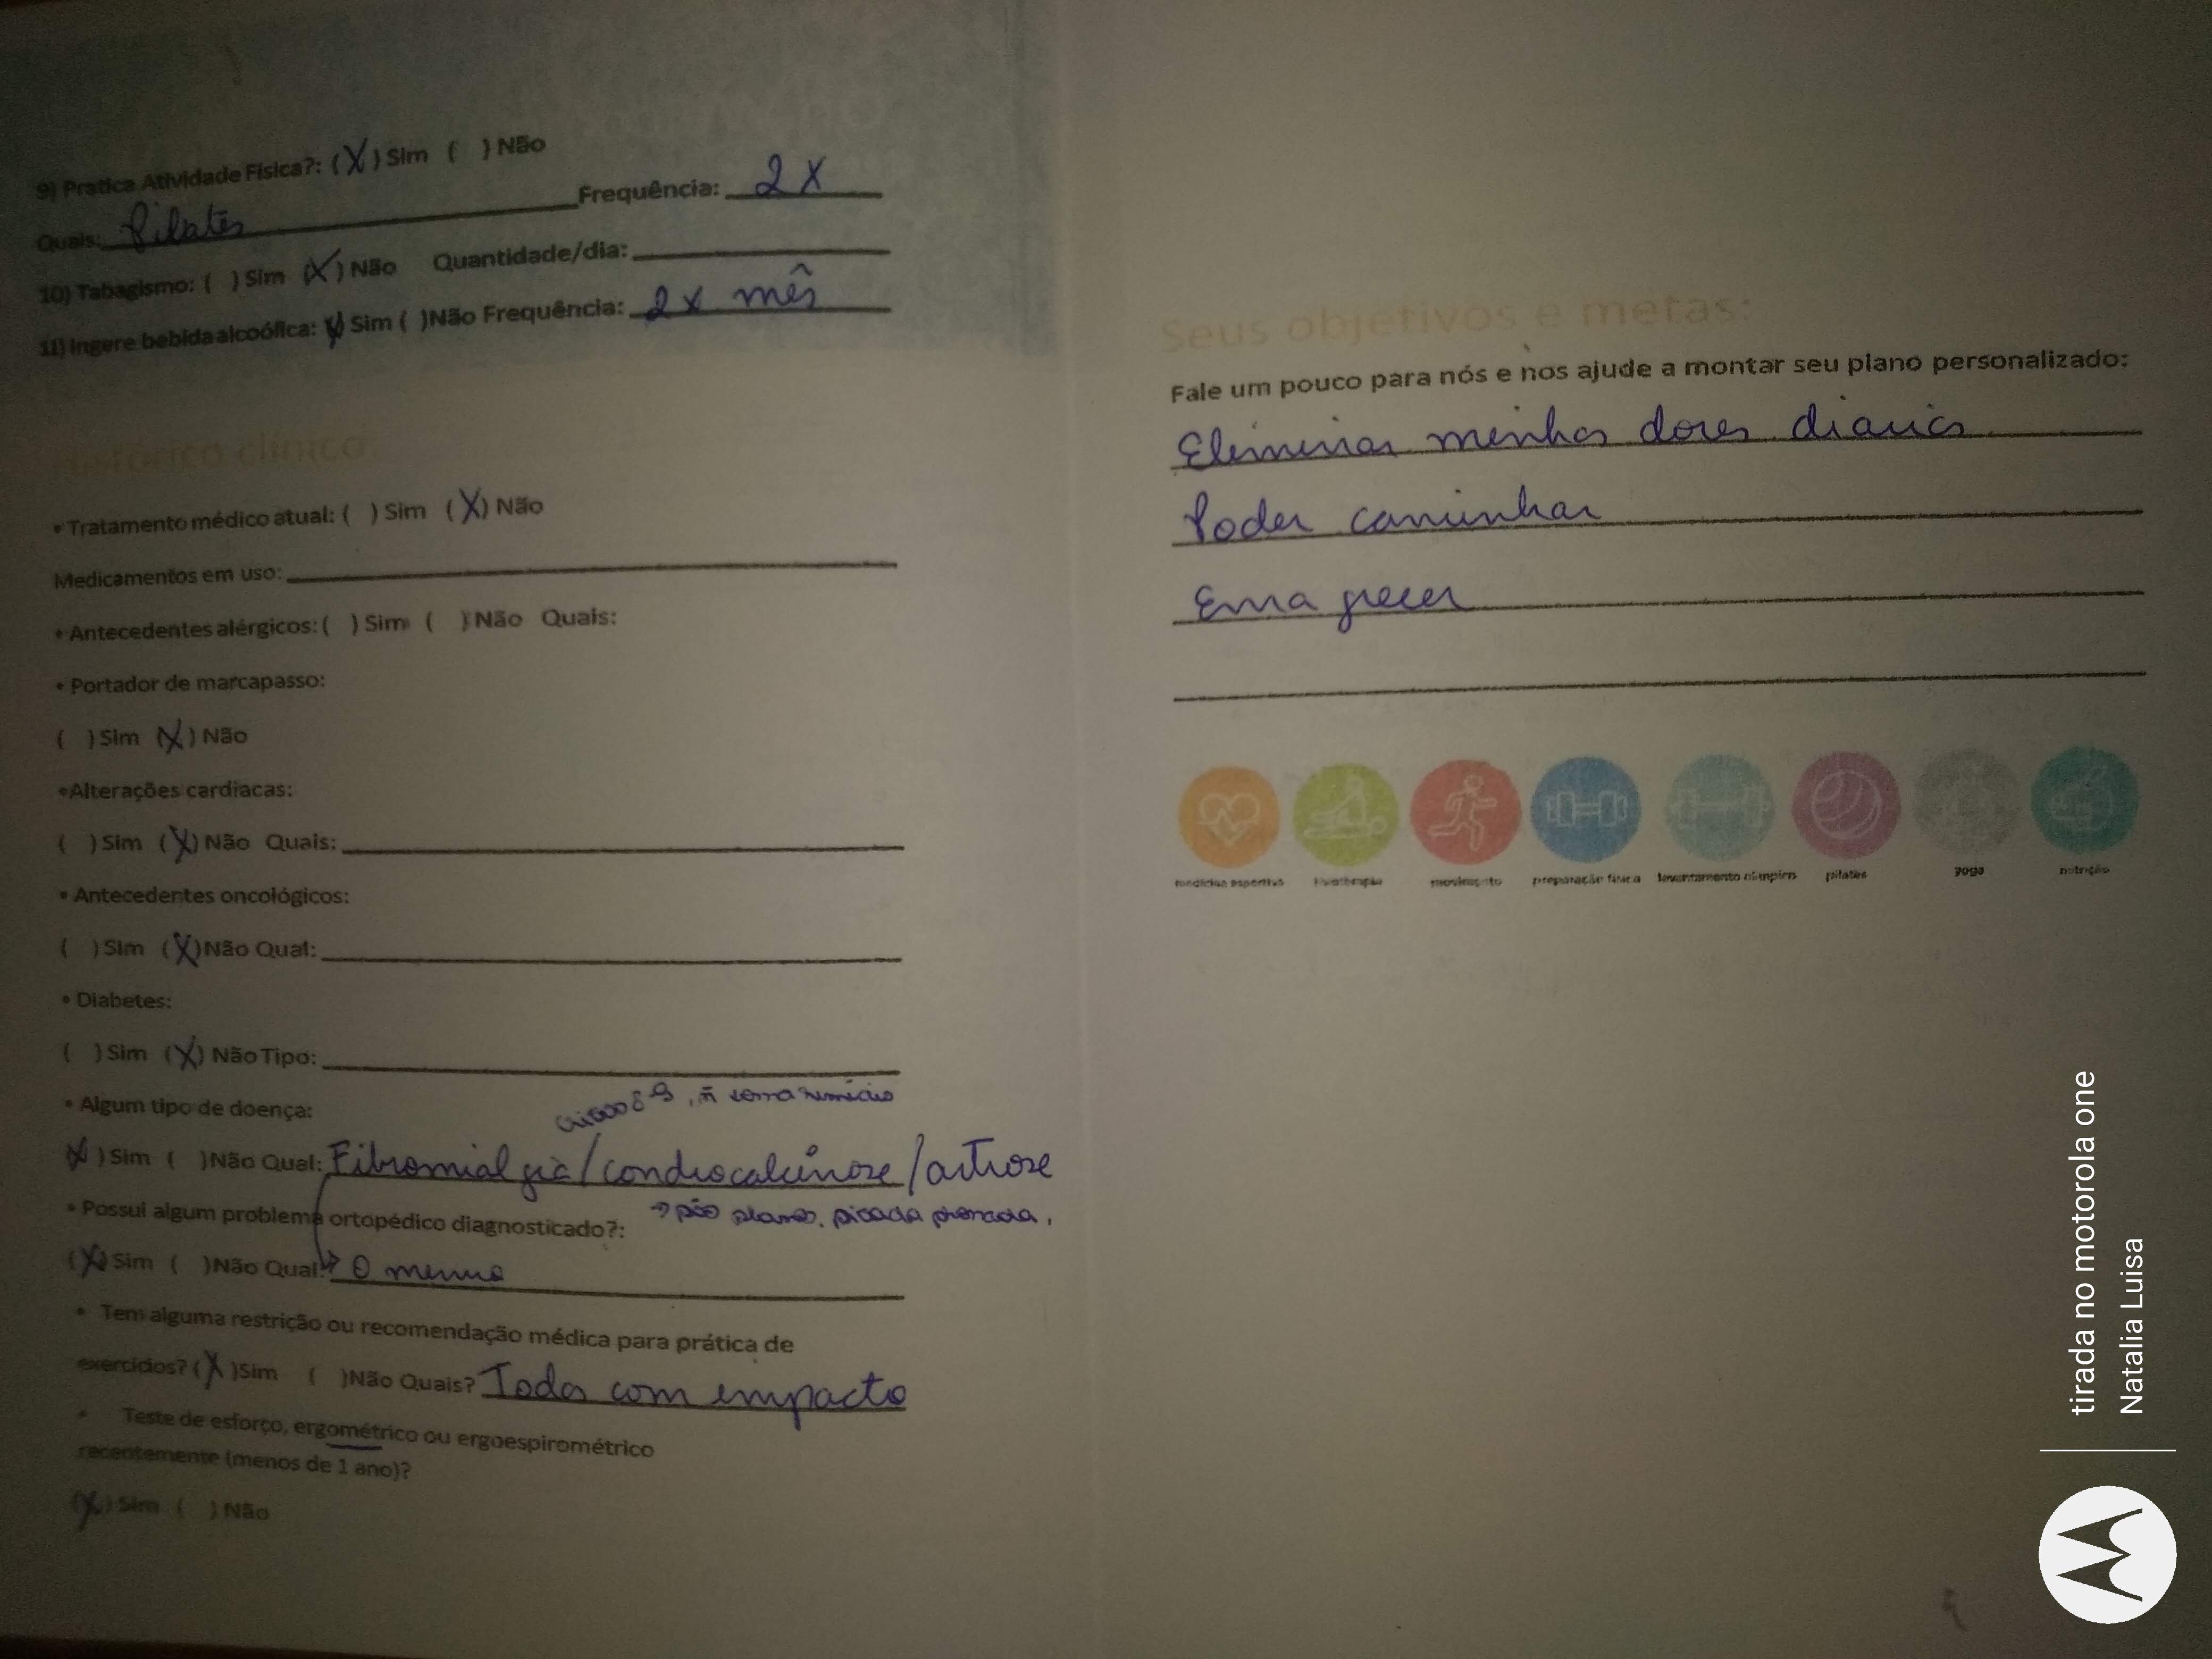 9) Pratica Atividade Física?: (X) Sim ( ) Não
Quais: Pilates Frequência: 2x
10) Tabagismo: ( ) Sim (X) Não Quantidade/dia:
11) Ingere bebida alcoólica: (X) Sim ( ) Não Frequência: 2x mês
• Tratamento médico atual: ( ) Sim (X) Não
Medicamentos em uso:
• Antecedentes alérgicos: ( ) Sim ( ) Não Quais:
• Portador de marcapasso:
( ) Sim (X) Não
•Alterações cardiacas:
( ) Sim (X) Não Quais:
• Antecedentes oncológicos:
( ) Sim (X) Não Qual:
• Diabetes:
( ) Sim (X) Não Tipo:
• Algum tipo de doença:
(X) Sim ( ) Não Qual: Fibromialgia/condrocalcinose/artrose
• Possui algum problema ortopédico diagnosticado?:
(X) Sim ( ) Não Qual: → O mesmo
• Tem alguma restrição ou recomendação médica para prática de
exercícios? (X) Sim ( ) Não Quais? Todos com impacto
• Teste de esforço, ergométrico ou ergoespirométrico
recentemente (menos de 1 ano)?
(X) Sim ( ) Não
Seus objetivos e metas:
Fale um pouco para nós e nos ajude a montar seu plano personalizado:
Eliminar minhas dores diarias
Poder caminhar
Emagrecer
medicina esportiva fisioterapia movimento preparação física levantamento olímpico pilates yoga nutrição
tirada no motorola one
Natalia Luisa